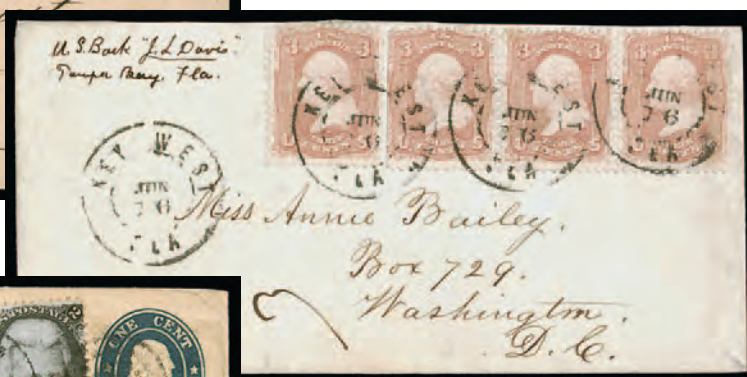 U.S. Bark "J. L. Davis".
Tampa Bay. Fla.
3 3 3 3 3 3
KEY WEST
JUN
FLA
KEY WEST
JUN
26
FLA
Miss Annie Bailey.
Box 729.
Washington.
D. C.
ONE CENT